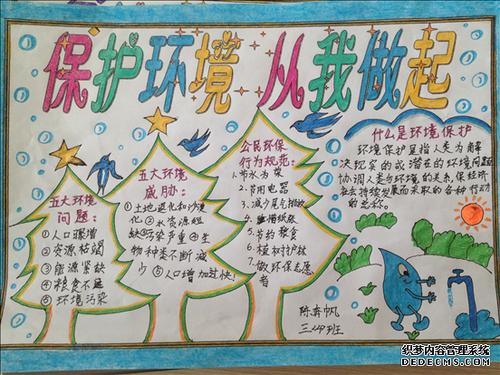 保护环境 从我做起
五大环境
问题:
①人口骤增
②资源枯竭
③能源紧缺
④粮食不足
⑤环境污染
五大环境
威胁:
①土地退化和沙漠
化②水资源短
缺③污染严重④生
物种类不断减
少⑤人口增加过快!
公民环保
行为规范:
1.节水为荣
2.节用电器
3.减少尾气排放
5.节约粮食
6.植树护林
7.做环保志愿
者
什么是环境保护
环境保护是指人类为解
决现实的或潜在的环境问题
协调人类与环境的关系,保经济
社会持续发展而采取的各种行动
的总称。
陈奔帆
三(4)班
织梦内容管理系统
DEDECMS.COM